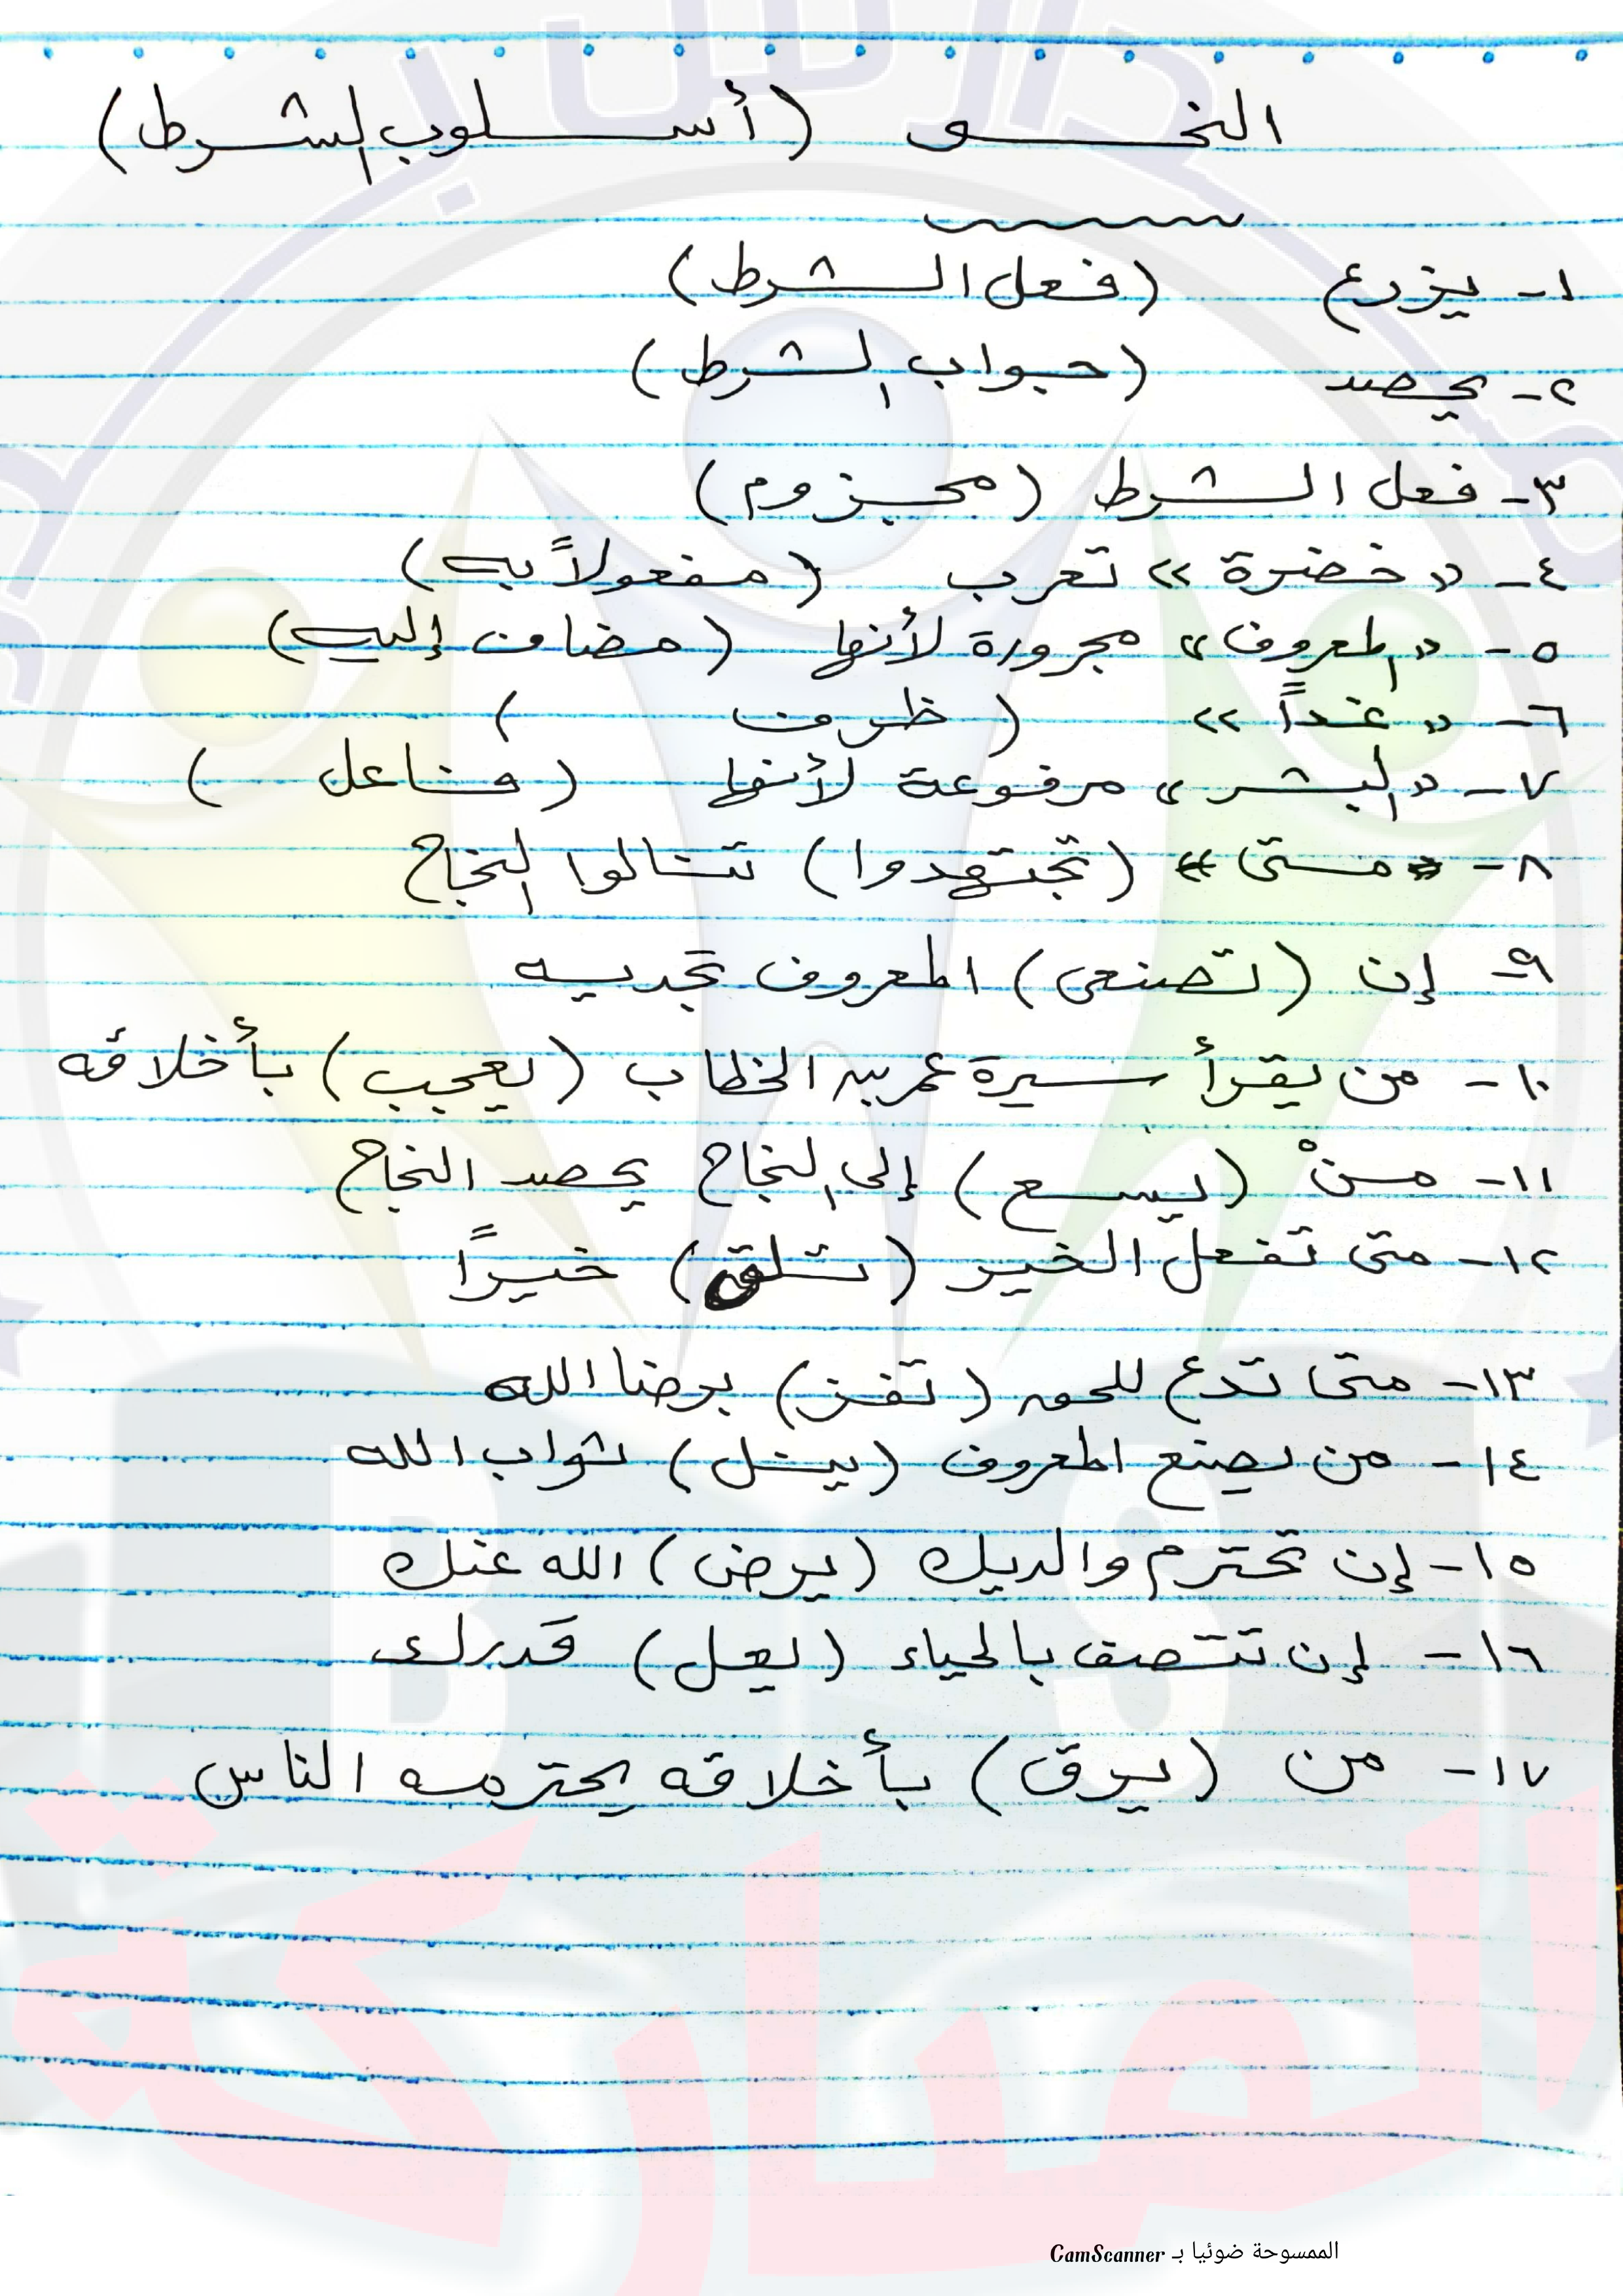 النحو (أسلوب الشرط)
١- يزرع (فعل الشرط)
٢- يحصد (جواب الشرط)
٣- فعل الشرط (مجزوم)
٤- « خضرة » تعرب (مفعولاً به)
٥- « المعروف » مجرورة لأنها (مضاف إليه)
٦- « غداً » (ظرف)
٧- « البشر » مرفوعة لأنها (فاعل)
٨- « متى » (تجتهدوا) تنالوا النجاح
٩- إن (تصنعى) المعروف تجديه
١٠- من يقرأ سيرة عمر بن الخطاب (يعجب) بأخلاقه
١١- منْ (يسع) إلى النجاح يحصد النجاح
١٢- متى تفعل الخير (تلق) خيراً
١٣- متى تدع للحق (تفز) برضا الله
١٤- من يصنع المعروف (ينل) ثواب الله
١٥- إن تحترم والديك (يرض) الله عنك
١٦- إن تتصف بالحياء (يعل) قدرك
١٧- من (يرق) بأخلاقه يحترمه الناس
المباركة
B S
الممسوحة ضوئيا بـ CamScanner